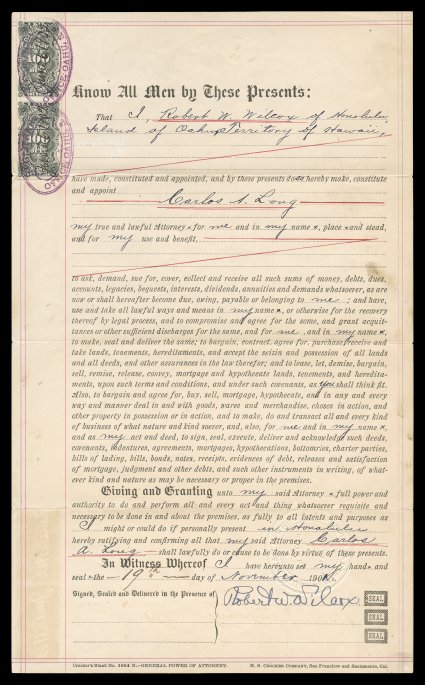 Know All Men by These Presents:
That I, Robert W. Wilcox of Honolulu,
Island of Oahu Territory of Hawaii,
have made, constituted and appointed, and by these presents does hereby make, constitute
and appoint Carlos A. Long
my true and lawful Attorney for me and in my name, place and stead,
and for my use and benefit,
to ask, demand, sue for, cover, collect and receive all such sums of money, debts, dues,
accounts, legacies, bequests, interests, dividends, annuities and demands whatsoever, as are
now or shall hereafter become due, owing, payable or belonging to me; and have,
use and take all lawful ways and means in my name, or otherwise for the recovery
thereof by legal process, and to compromise and agree for the same, and grant acquit-
tances or other sufficient discharges for the same, and for me and in my name,
to make, seal and deliver the same; to bargain, contract, agree for, purchase, receive and
take lands, tenements, hereditaments, and accept the seizin and possession of all lands
and all deeds, and other assurances in the law therefor; and to lease, let, demise, bargain,
sell, remise, release, convey, mortgage and hypothecate lands, tenements, and heredita-
ments, upon such terms and conditions, and under such covenants, as you shall think fit.
Also, to bargain and agree for, buy, sell, mortgage, hypothecate, and in any and every
way and manner deal in and with goods, wares and merchandise, choses in action, and
other property in possession or in action, and to make, do and transact all and every kind
of business of what nature and kind soever, and, also, for me and in my name,
and as my act and deed, to sign, seal, execute, deliver and acknowledge such deeds,
covenants, indentures, agreements, mortgages, hypothecations, bottomries, charter parties,
bills of lading, bills, bonds, notes, receipts, evidences of debt, releases and satisfaction
of mortgage, judgment and other debts, and such other instruments in writing, of what-
ever kind and nature as may be necessary or proper in the premises.
Giving and Granting unto my said Attorney full power and
authority to do and perform all and every act and thing whatsoever requisite and
necessary to be done in and about the premises, as fully to all intents and purposes as
I might or could do if personally present in Honolulu
hereby ratifying and confirming all that my said Attorney Carlos
A. Long shall lawfully do or cause to be done by virtue of these presents.
In Witness Whereof I have hereunto set my hand and
seal the 19th day of November 1901.
Signed, Sealed and Delivered in the Presence of
Robert W. Wilcox SEAL
SEAL
SEAL
Crocker's Blank No. 1924 N.—GENERAL POWER OF ATTORNEY. H. S. CROCKER COMPANY, San Francisco and Sacramento, Cal.